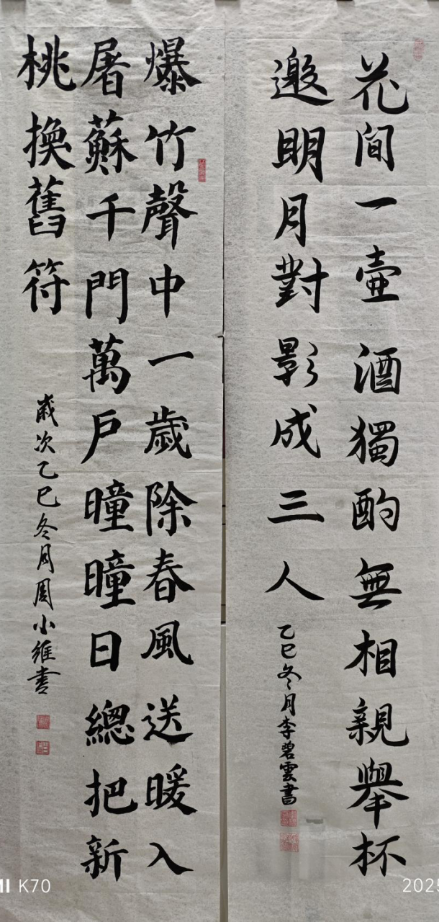 花間一壷酒獨酌無相親舉杯
邀明月對影成三人
乙巳冬月李碧雲書
爆竹聲中一歲除春風送暖入
屠蘇千門萬戶曈曈日總把新
桃換舊符
歲次乙巳冬月周小維書
MI K70
2025